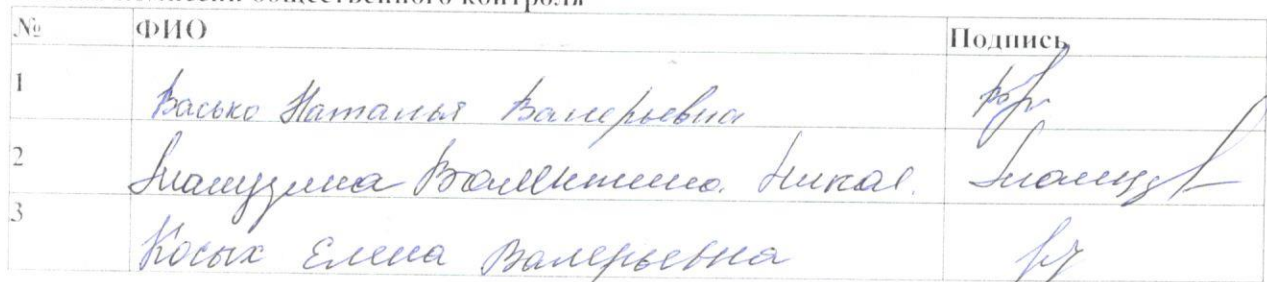 комиссии общественного контроля
№ ФИО Подпись
1 Васько Наталья Валерьевна
2 Валентина Никол.
3 Косых Елена Валерьевна